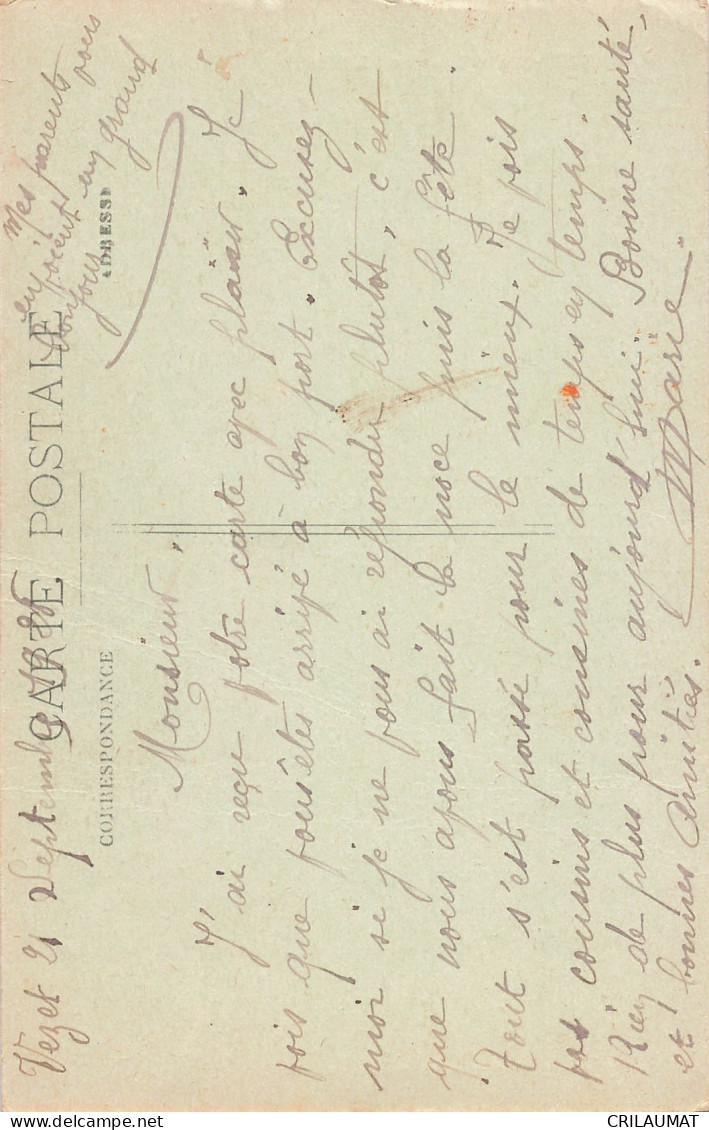 CARTE POSTALE
CORRESPONDANCE
ADRESSE
Vezet 21 Septembre
Monsieur,
J'ai reçu votre carte avec plaisir. Je
vois que vous êtes arrivé à bon port. Excusez-
moi si je ne vous ai répondu plutot, c'est
que nous avons fait la noce puis la fête.
Tout s'est passé pour le mieux. Je vois
vos cousins et cousines de temps en temps.
Rien de plus pour aujourd'hui. Bonne santé,
et bonnes amitiés.
Marie
Mes parents vous
en
envoient
toujours en grand
CRILAUMAT